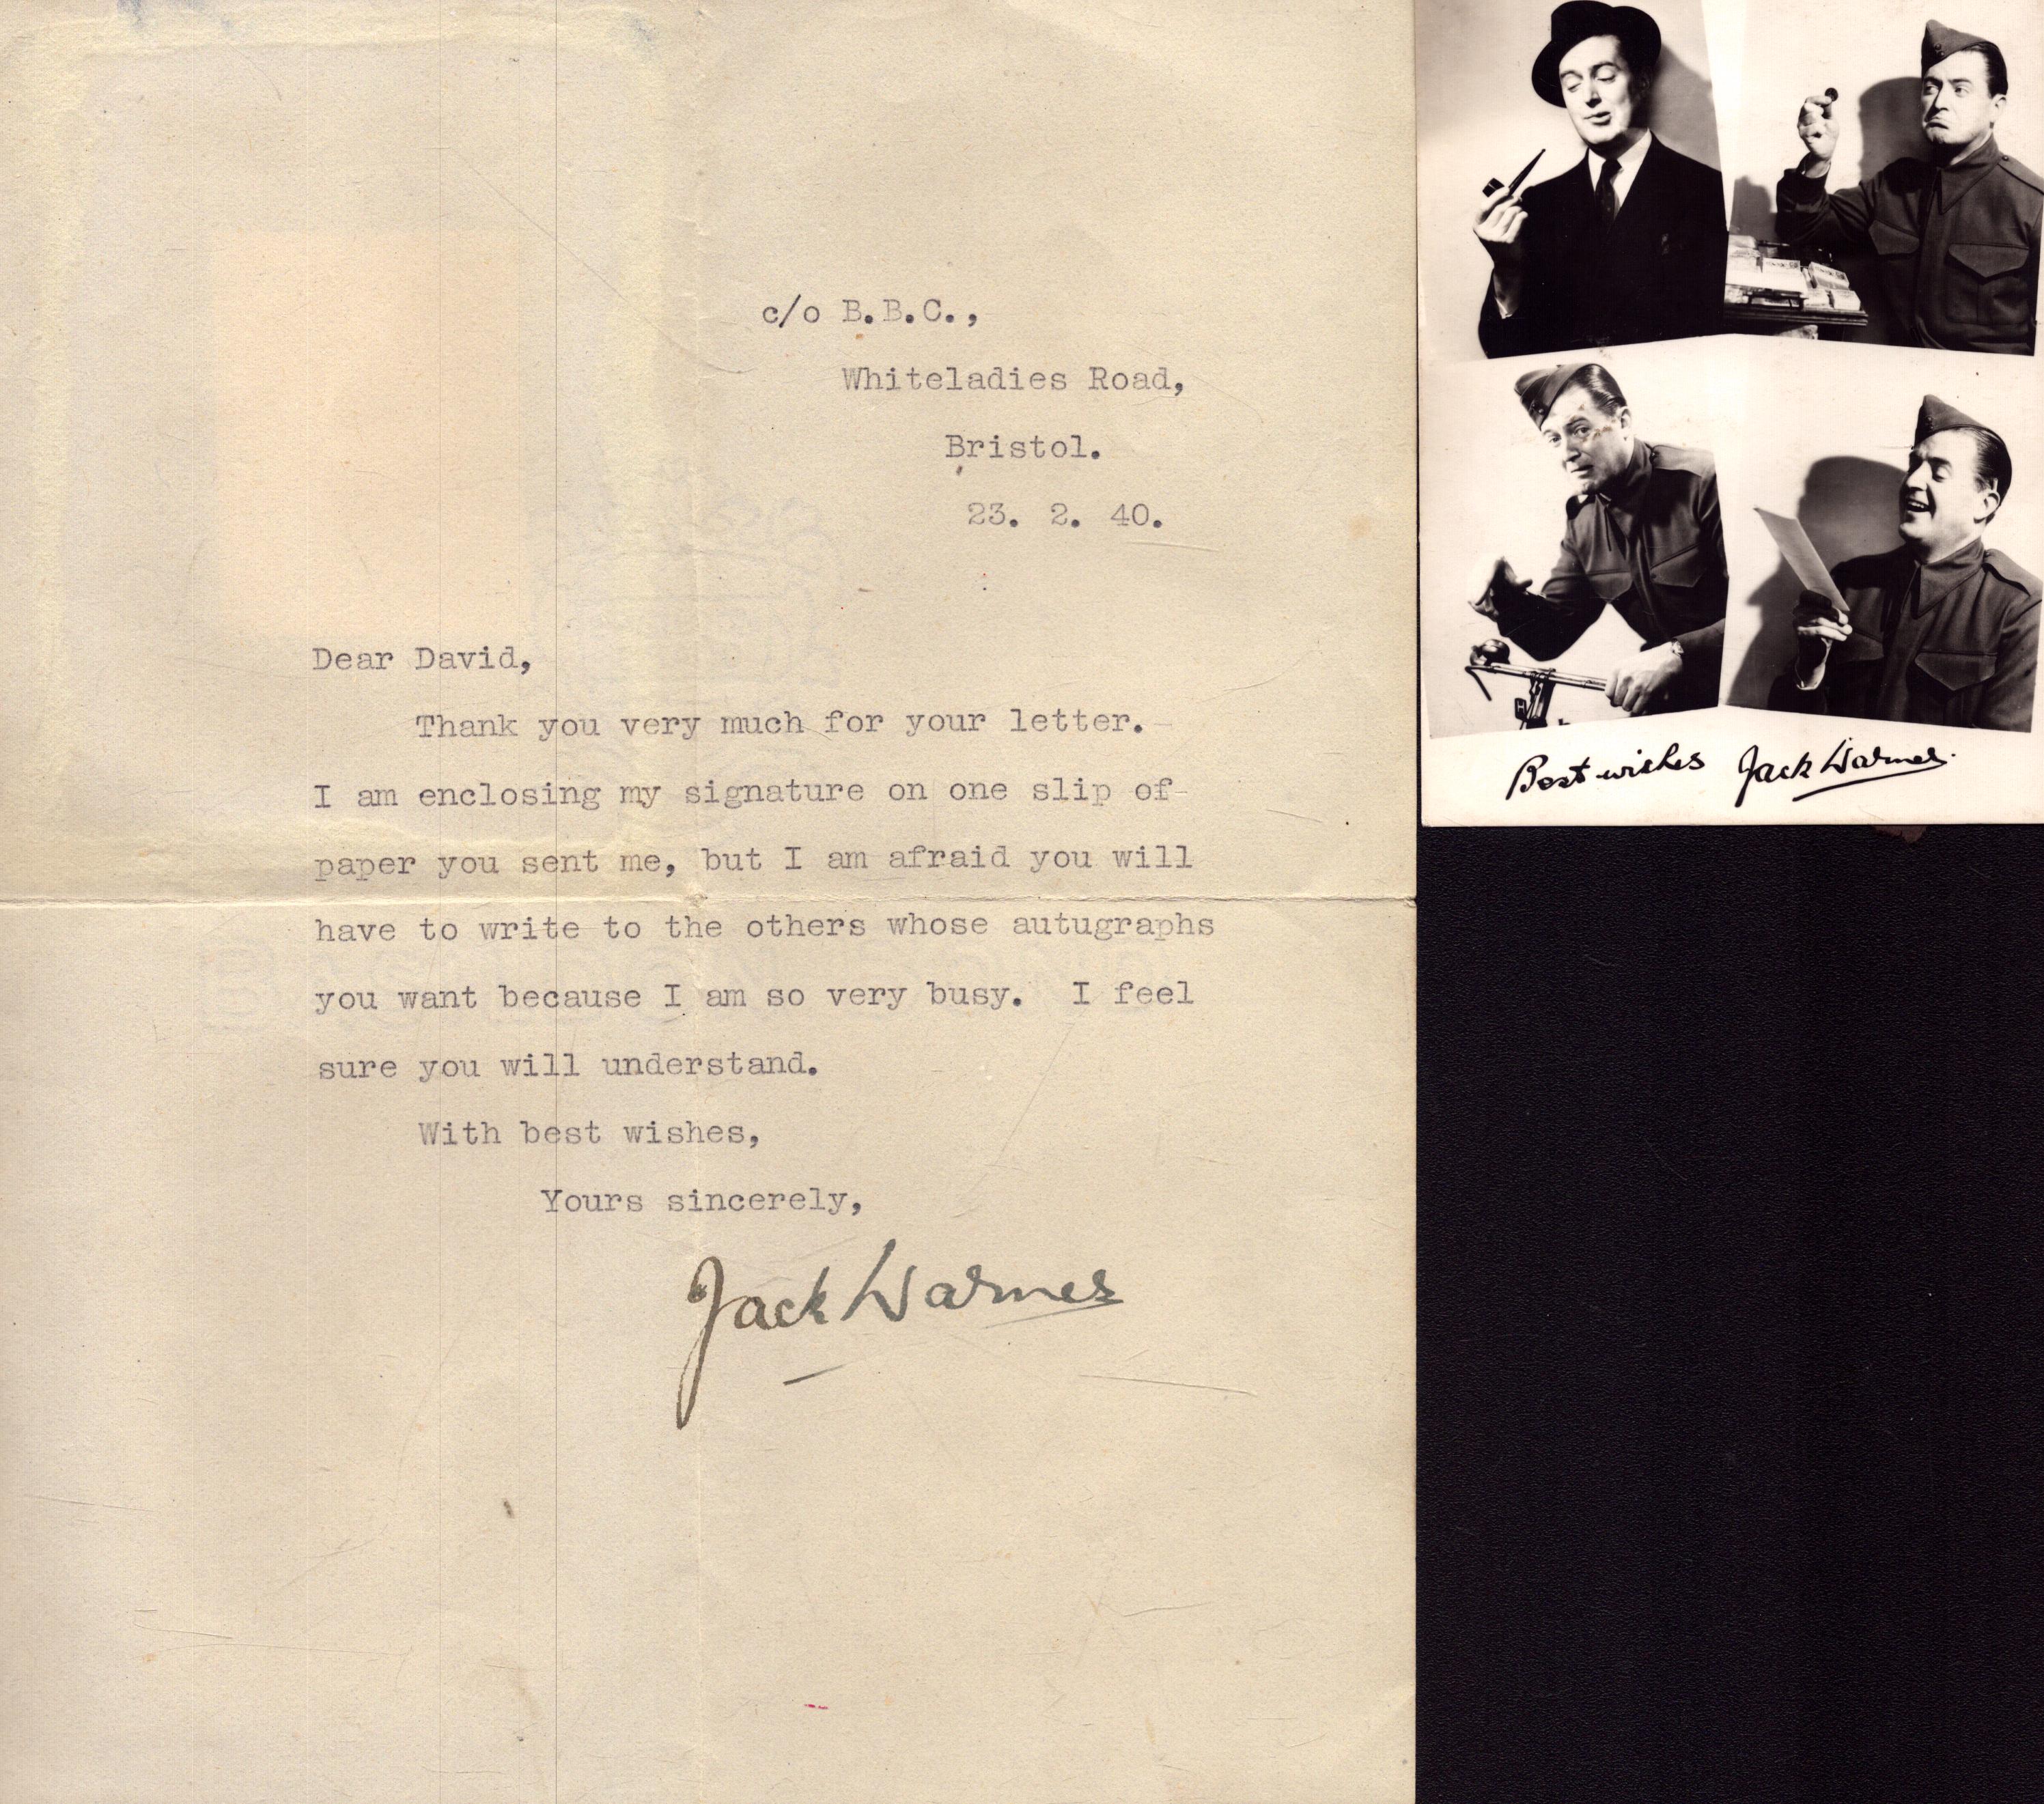 c/o B.B.C.,
Whiteladies Road,
Bristol.
23. 2. 40.
Dear David,
Thank you very much for your letter.
I am enclosing my signature on one slip of
paper you sent me, but I am afraid you will
have to write to the others whose autugraphs
you want because I am so very busy.  I feel
sure you will understand.
With best wishes,
Yours sincerely,
Jack Warner
Best wishes Jack Warner.